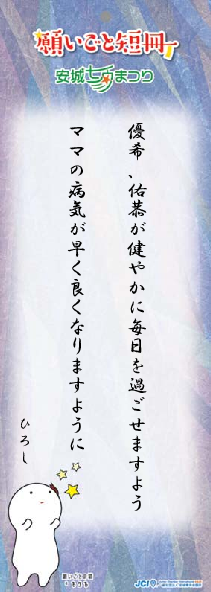 願いごと短冊
安城七夕まつり
優希、佑恭が健やかに毎日を過ごせますよう
ママの病気が早く良くなりますように
ひろし
願いごと短冊
JCI